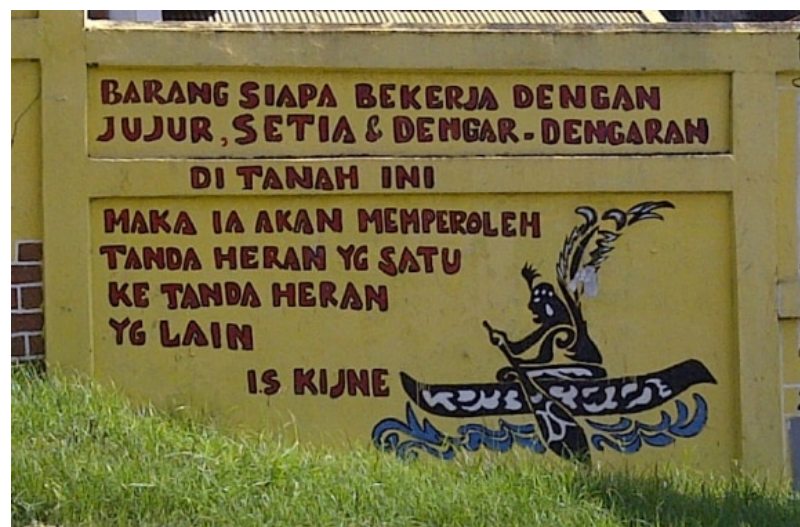 BARANG SIAPA BEKERJA DENGAN
JUJUR, SETIA & DENGAR-DENGARAN
DI TANAH INI
MAKA IA AKAN MEMPEROLEH
TANDA HERAN YG SATU
KE TANDA HERAN
YG LAIN
I.S KIJNE